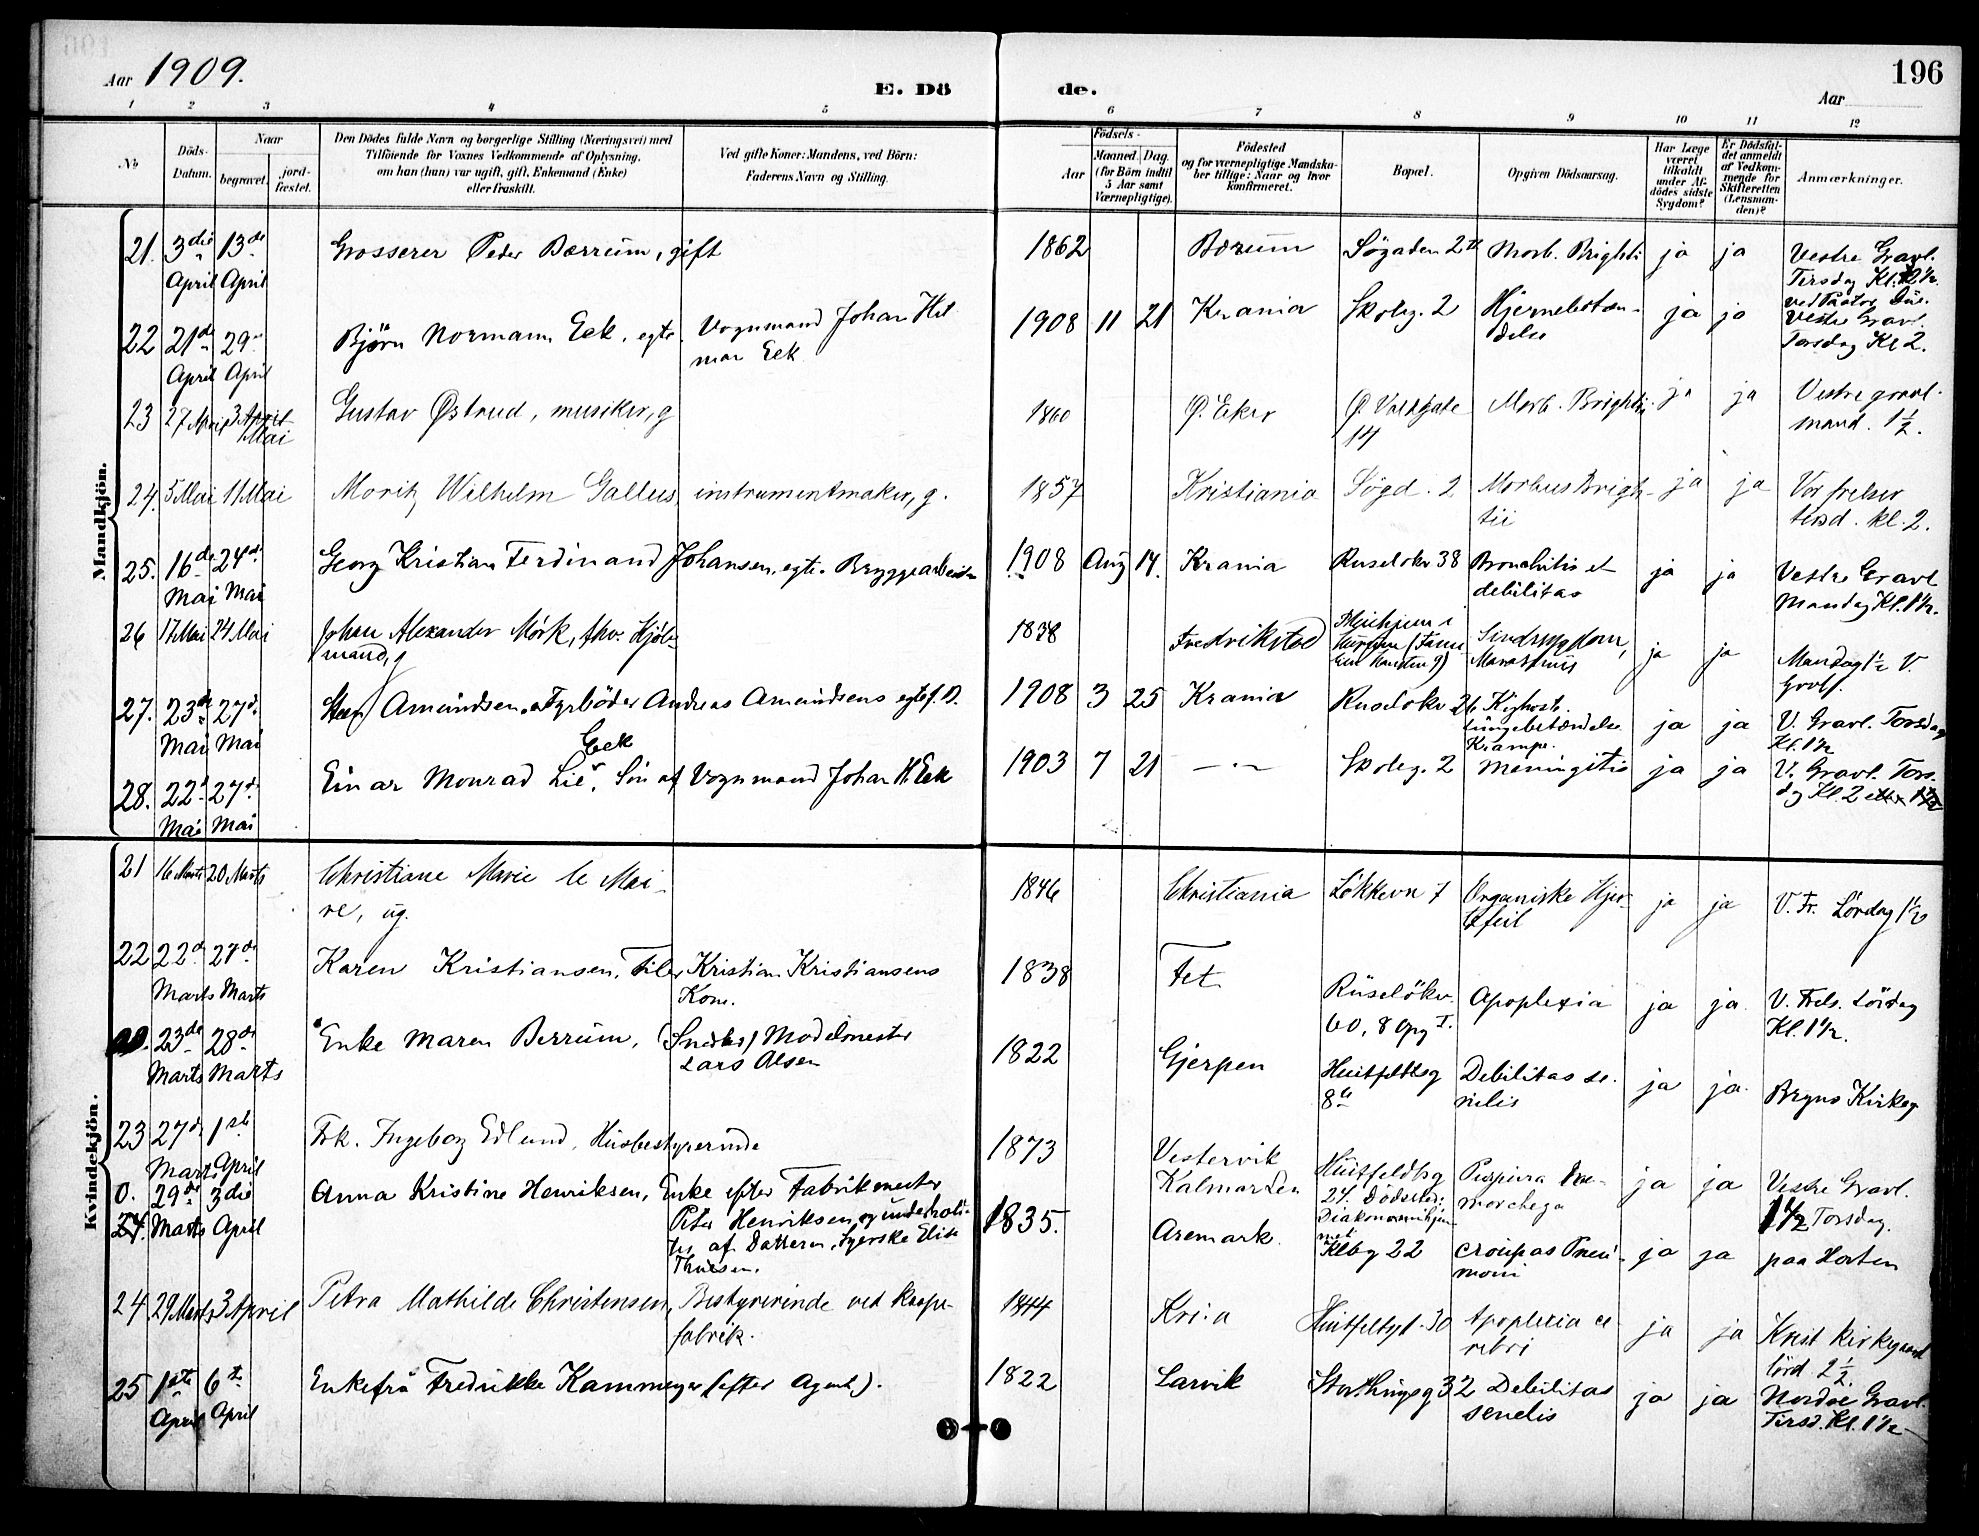 Aar 1909.
E. Dö de.
196
Aar
1 2 3 4 5 6 7 8 9 10 11 12
No
Döds-Datum.
Naar
begravet.
jord-fæstet.
Den Dödes fulde Navn og borgerlige Stilling (Næringsvei) med
Tilföiende for Voxnes Vedkommende af Oplysning,
om han (hun) var ugift, gift, Enkemand (Enke)
eller fraskilt.
Ved gifte Koner: Mandens, ved Börn:
Faderens Navn og Stilling.
Födsels-
Aar
Maaned. Dag.
(for Börn indtil
5 Aar samt
Værnepligtige).
Födested
og for værnepligtige Mandska-
ber tillige: Naar og hvor
konfirmeret.
Bopæl.
Opgiven Dödsaarsag.
Har Læge
været
tilkaldt
under Af-
dödes sidste
Sygdom?
Er Dödsfal-
det anmeldt
af Vedkom-
mende for
Skifteretten
(Lensman-
den)?
Anmærkninger.
Mandkjön.
21. 3die April 13de April Grosserer Peder Bærrum, gift 1862 Bærum Søgaden 2 Morb. Brightii ja ja Vestre Gravl.
Tirsdag Kl.
ved Pastor
22 21de April 29 April Bjørn Normann Eek, egte. Vognmand Johan Hil
mar Eek 1908 11 21 Krania Skoleg. 2 Hjernebetæn-
delse ja ja Vestre Gravl.
Torsdag Kl 2.
23 27 April 3 April Mai Gustav Østrud, musiker, g 1860 Ø. Eker Ø. Voldgate
14 Morb. Brightii ja ja Vestre gravl.
mand. 1½.
24. 5 Mai 11 Mai Moritz Wilhelm Gallus, instrumentmaker, g. 1857 Kristiania Søgd. 2 Morbus Brigh-
tii ja ja Vor frelser
tirsd. kl. 2.
25. 16de Mai 24de Mai Georg Kristian Ferdinand Johansen, egte. Bryggearbeider 1908 Aug 14. Krania Ruseløkv 38 Bronchitis et
debilitas ja ja Vestre Gravl
Mandag Kl. 1½.
26 17 Mai 24 Mai Johan Alexander Mörk, fhv. Kjöb-
mand, g 1838 Fredrikstad Sindssygdom,
Marasmus ja ja Mandag 1½ V.
Gravl.
27. 23de Mai 27de Mai Amundsen, Fyrböder Andreas Amundsens egtef. D. 1908 3 25 Krania Ruseløkv 26 Kighoste.
Lungebetændelse
Krampe. ja ja V. Gravl. Torsdag
Kl. 1½
28. 22d Mai 27d Mai Einar Monrad Lie Eek, Sön af Vognmand Johan H Eek 1903 7 21 —·— Skoleg. 2 Meningitis ja ja V. Gravl. Tors-
dg Kl. 2
Kvindekjön.
21 16 Marts 20 Marts Christiane Marie le Mai-
re, ug. 1846 Christiania Lökkevn 7 Organiske Hjer-
tefeil ja ja V. Fr. Lördag 1½
22 22d Marts 27de Marts Karen Kristiansen, Kristian Kristiansens
Kone. 1838 Fet Ruselökv.
60, 8 Opg I. Apoplexia ja ja. V. Frels. Lördag
Kl. 1½.
23de Marts 28de Marts Enke Maren Berrum, (Snedker) Modelmester
Lars Olsen 1822 Gjerpen Huitfeldtsg
8 Debilitas se-
nilis ja ja. Bryns Kirkeg
23 27d Marts 1ste April Frk. Ingeborg Edlund, Husbestyrerinde 1873 Vestervik
Kalmar Len Huitfeldtsg
24. Dödsted:
Diakonissehjem-
met Purpura
ja ja Vestre Gravl.
1½ Torsdag.
0. 24. 29de Marts 3die April Anna Kristine Henriksen, Enke efter Fabrikmester
Peter Henriksen, og underhol-
des af Datteren, Syerske Elise
Thuesen. 1835. Aremark. Klbg 22 croupøs Pneu-
moni ja ja paa Horten
24 29 Marts 3 April Petra Mathilde Christensen, Bestyrerinde ved
fabrik. 1844 Kri:a Huitfeltsgd. 30 Apoplexia ce-
rebri ja ja Krist Kirkegaard
lörd 2½.
25 1ste April 6te April Enkefru Fredrikke Kammeyer (efter Agent). 1822 Larvik Storthingsg 32 Debilitas
senelis ja ja Nordre Gravl.
Tirsd. Kl. 1½